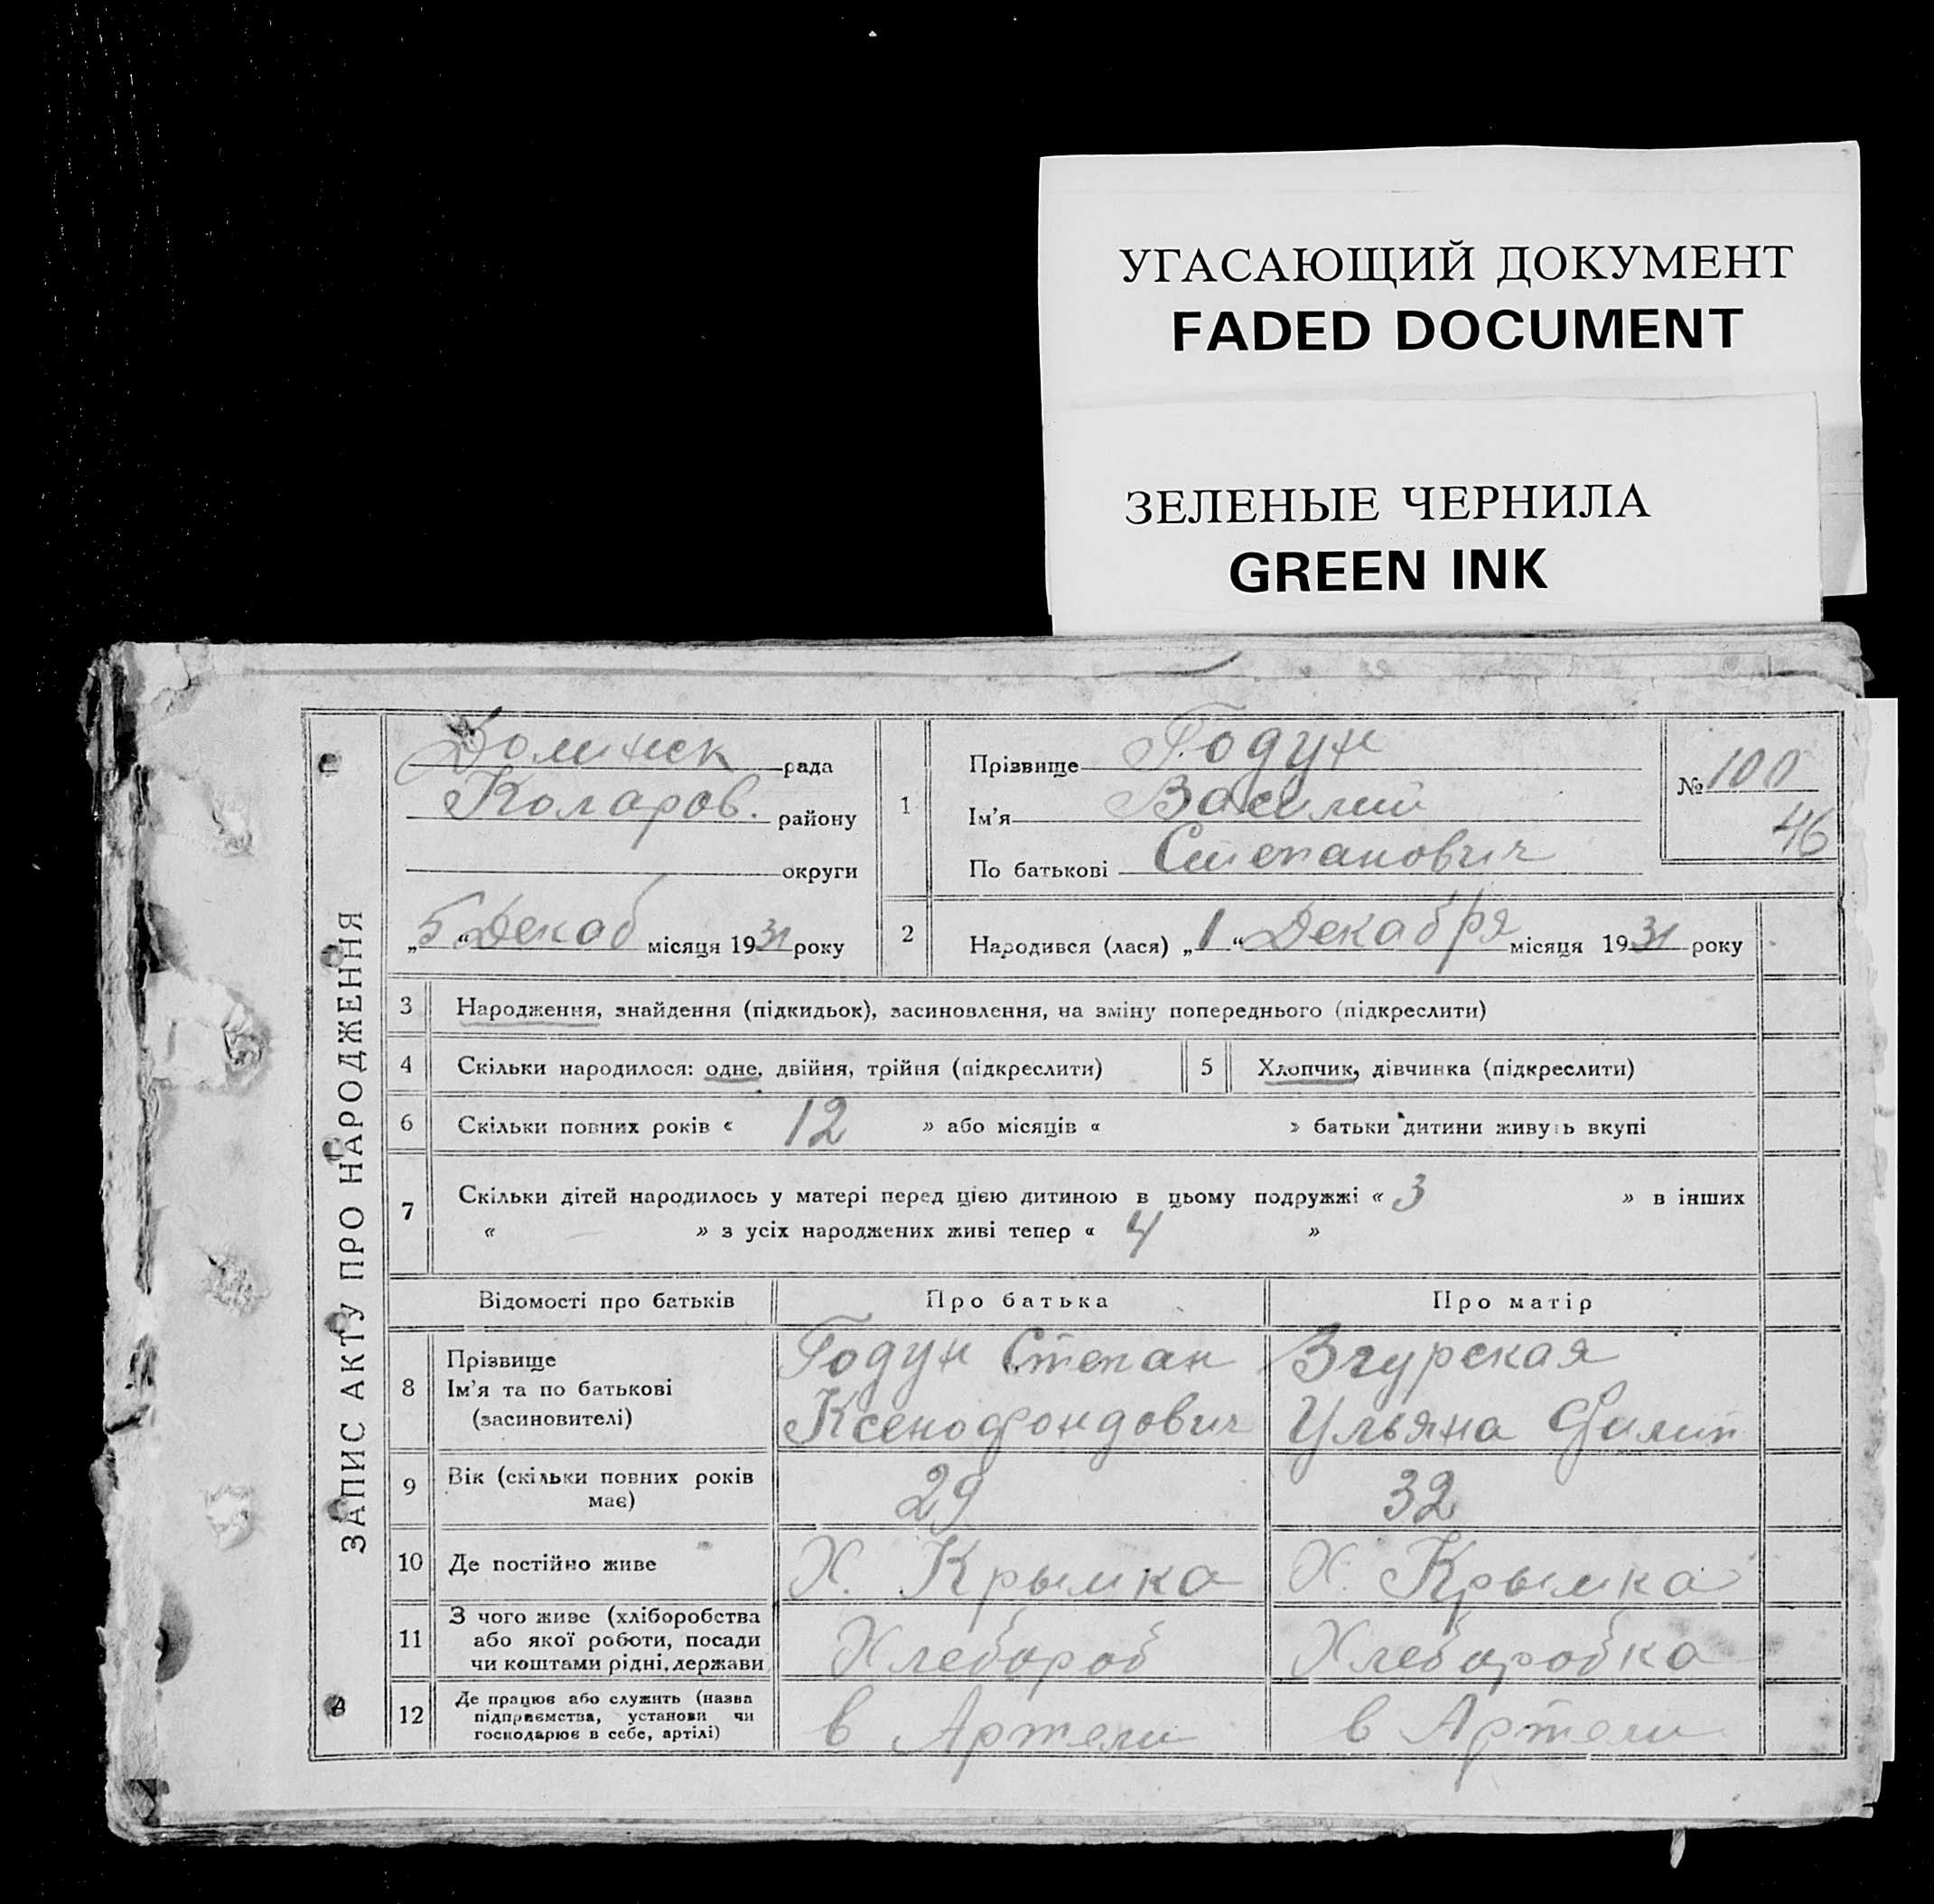 УГАСАЮЩИЙ ДОКУМЕНТ
FADED DOCUMENT
ЗЕЛЕНЫЕ ЧЕРНИЛА
GREEN INK
ЗАПИС АКТУ ПРО НАРОДЖЕННЯ
Долинск рада
Коларов. району
округи
„5“ Декаб місяця 1931 року
1
Прізвище Годун
Ім'я Василий
По батькові Степанович
№ 100
46
2 Народився (лася) „1“ Декабря місяця 1931 року
3 Народження, знайдення (підкидьок), засиновлення, на зміну попереднього (підкреслити)
4 Скільки народилося: одне, двійня, трійня (підкреслити)
5 Хлопчик, дівчинка (підкреслити)
6 Скільки повних років « 12 » або місяців « » батьки дитини живуть вкупі
7 Скільки дітей народилось у матері перед цією дитиною в цьому подружжі « 3 » в інших
« » з усіх народжених живі тепер « 4 »
Відомості про батьків Про батька Про матір
8 Прізвище
Ім'я та по батькові
(засиновителі)
Годун Степан
Ксенофондович
Згурская
Ульяна Филип
9 Вік (скільки повних років
має)
29
32
10 Де постійно живе Х. Крымка Х. Крымка
11 З чого живе (хліборобства
або якої роботи, посади
чи коштами рідні, держави
Хлебороб
Хлеборобка
12 Де працює або служить (назва
підприємства, установи чи
господарює в себе, артілі)
в Артели
в Артели